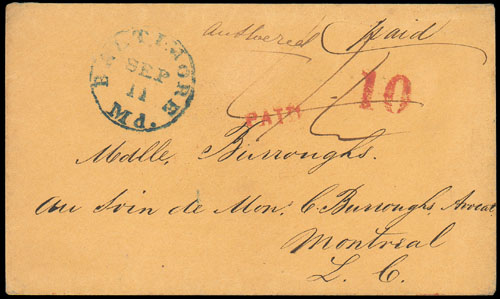 answered Paid
BALTIMORE
SEP
11
Md.
PAID
10
Mdlle, Burroughs.
au Soin de Mon. C. Burroughs, Avocat,
Montreal
L. C.